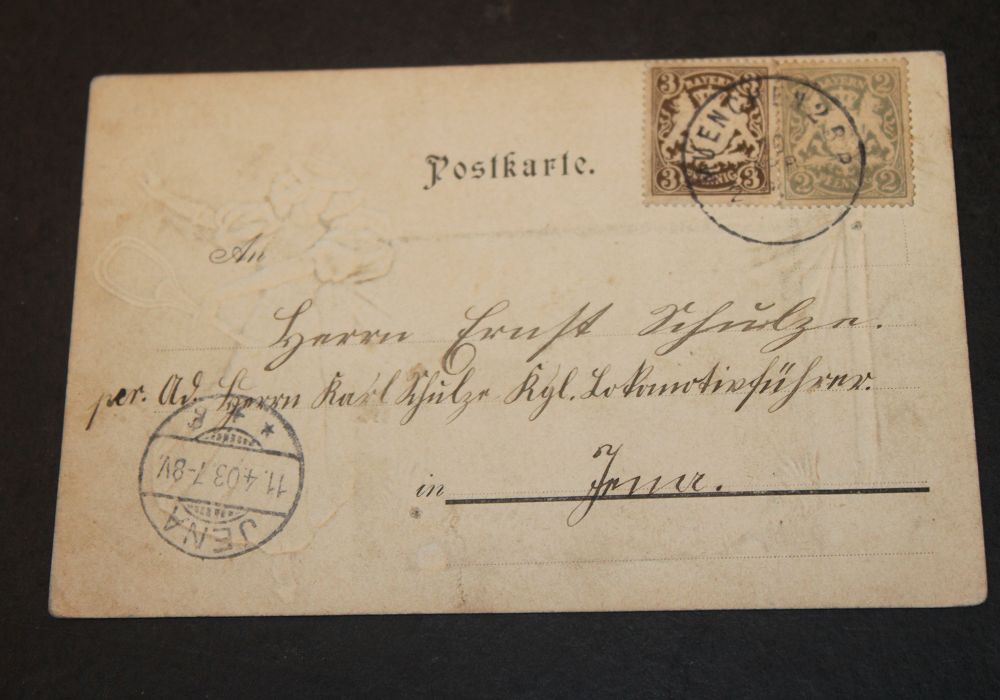 3 BAYERN 3
3 PFENNIG 3
2 BAYERN 2
2 PFENNIG 2
MUENCHEN 2 B.P.
Postkarte.
An
Herrn Ernst Schulze.
per. Ad. Herrn Karl Schulze Kgl. Lokomotivführer.
in Jena.
JENA
11.4.03.7-8V.